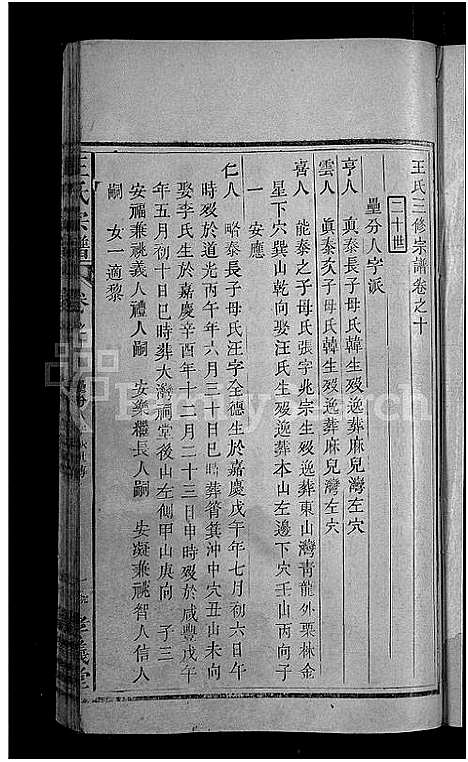 王氏三修宗譜卷之十
二十世
壘分人字派
亨人 眞泰長子母氏韓生歿逸葬麻兒灣左穴
雲人 眞泰次子母氏韓生歿逸葬麻兒灣左穴
喜人 能泰之子母氏張字兆宗生歿逸葬東山灣靑龍外栗林金
星下穴巽山乾向娶汪氏生歿逸葬本山左邊下穴壬山丙向子
一 安應
仁人 略泰長子母氏汪字全德生於嘉慶戊午年七月初六日午
時歿於道光丙午年六月三十日巳時葬筲箕沖中穴丑山未向
娶李氏生於嘉慶辛酉年十二月二十三日申時歿於咸豐戊午
年五月初十日巳時葬大灣祠堂後山左側甲山庚向 子三
安福兼祧義人禮人嗣 安樂繼長人嗣 安凝兼祧智人信人
嗣 女一適黎
王氏宗譜 卷之
孝義堂
FamilySearch